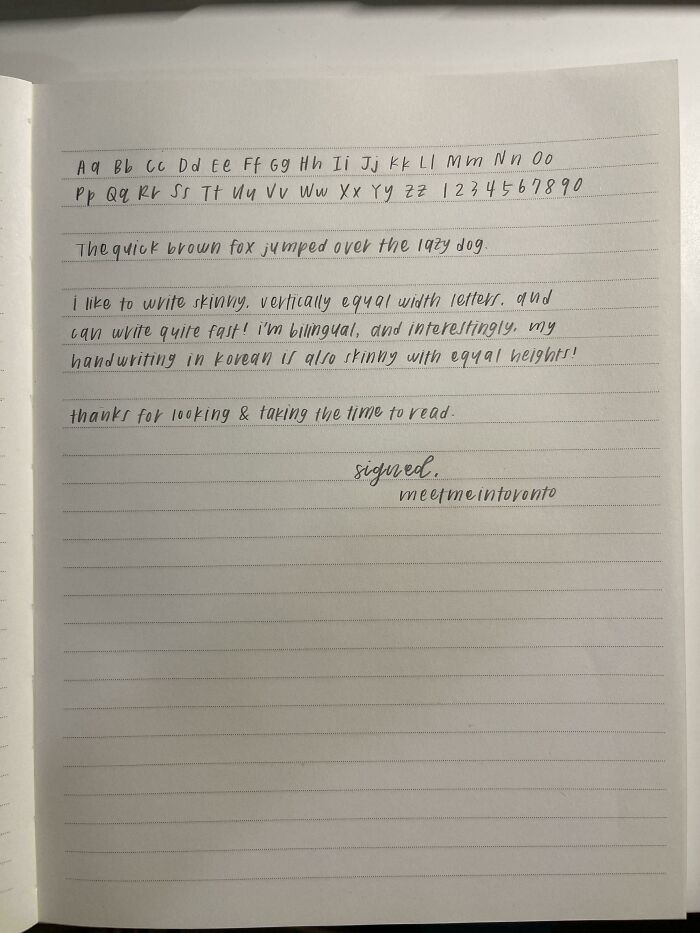 Aa Bb Cc Dd Ee Ff Gg Hh Ii Jj Kk Ll Mm Nn Oo
Pp Qq Rr Ss Tt Uu Vv Ww Xx Yy Zz 1 2 3 4 5 6 7 8 9 0
The quick brown fox jumped over the lazy dog.
i like to write skinny, vertically equal width letters, and
can write quite fast! i'm bilingual, and interestingly, my
handwriting in korean is also skinny with equal heights!
thanks for looking & taking the time to read.
signed,
meetmeintoronto